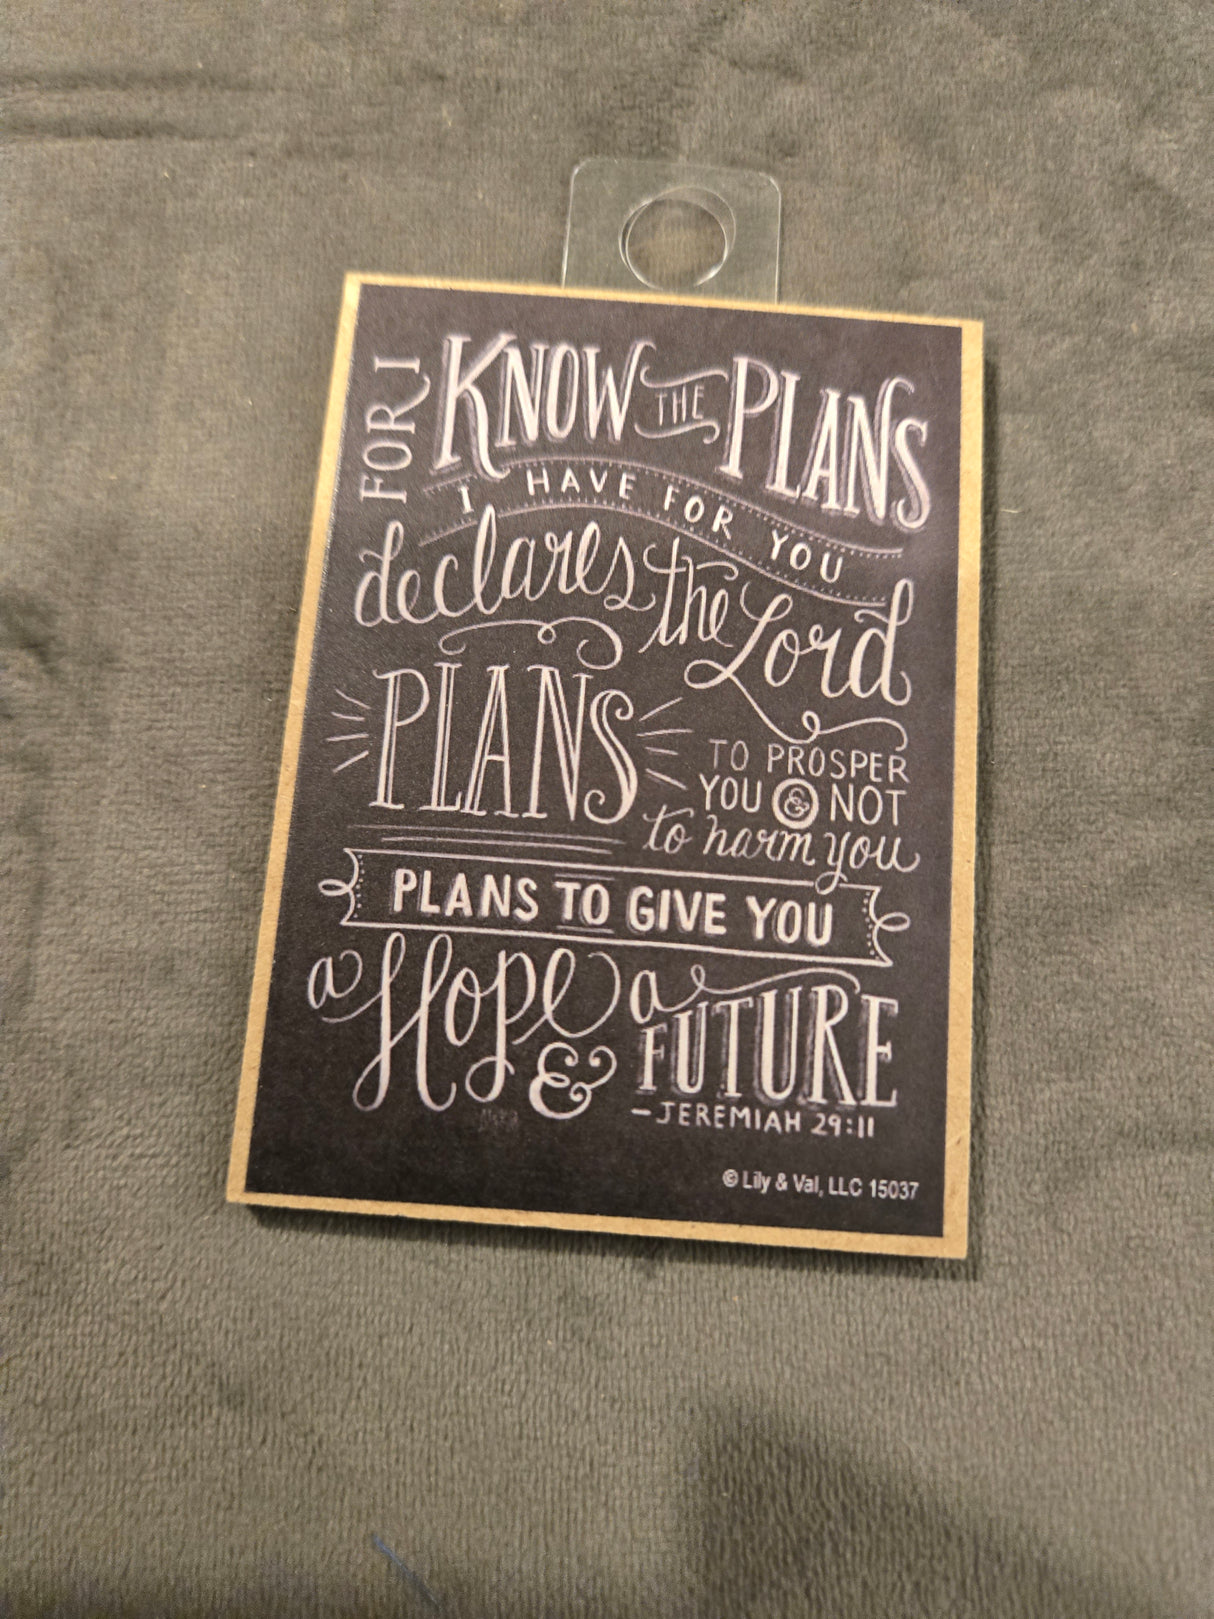 FOR I KNOW THE PLANS
I HAVE FOR YOU
declares the Lord
PLANS
TO PROSPER
YOU & NOT
to harm you
PLANS TO GIVE YOU
a Hope
& a
FUTURE
-JEREMIAH 29:11
© Lily & Val, LLC 15037